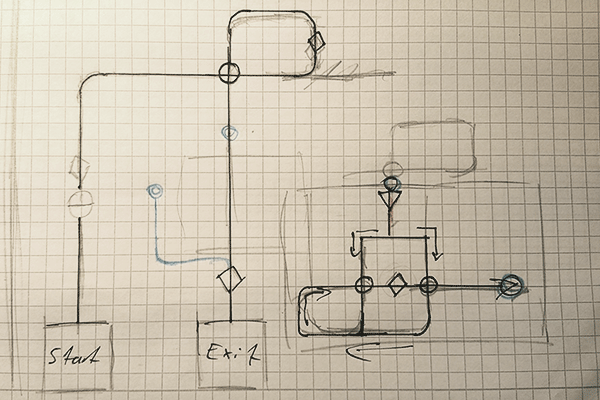 Start
Exit